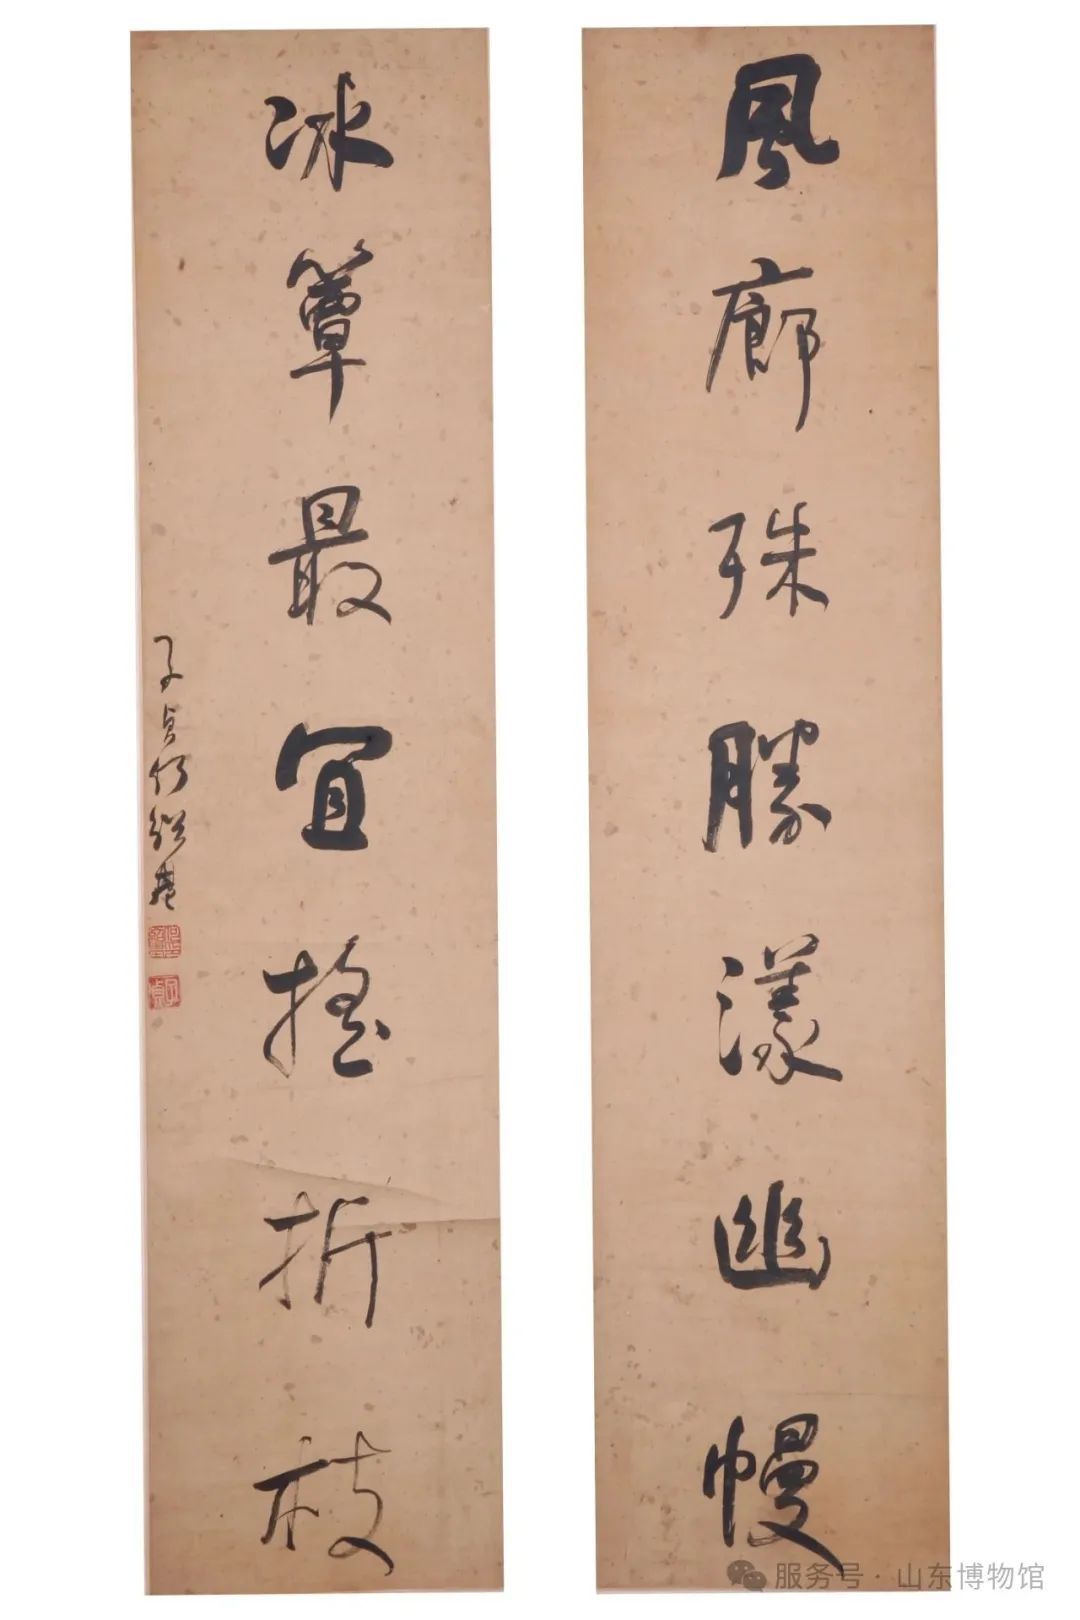 風廊殊勝漾幽幔
冰簟最宜搖折枝
子貞何紹基
服务号·山东博物馆